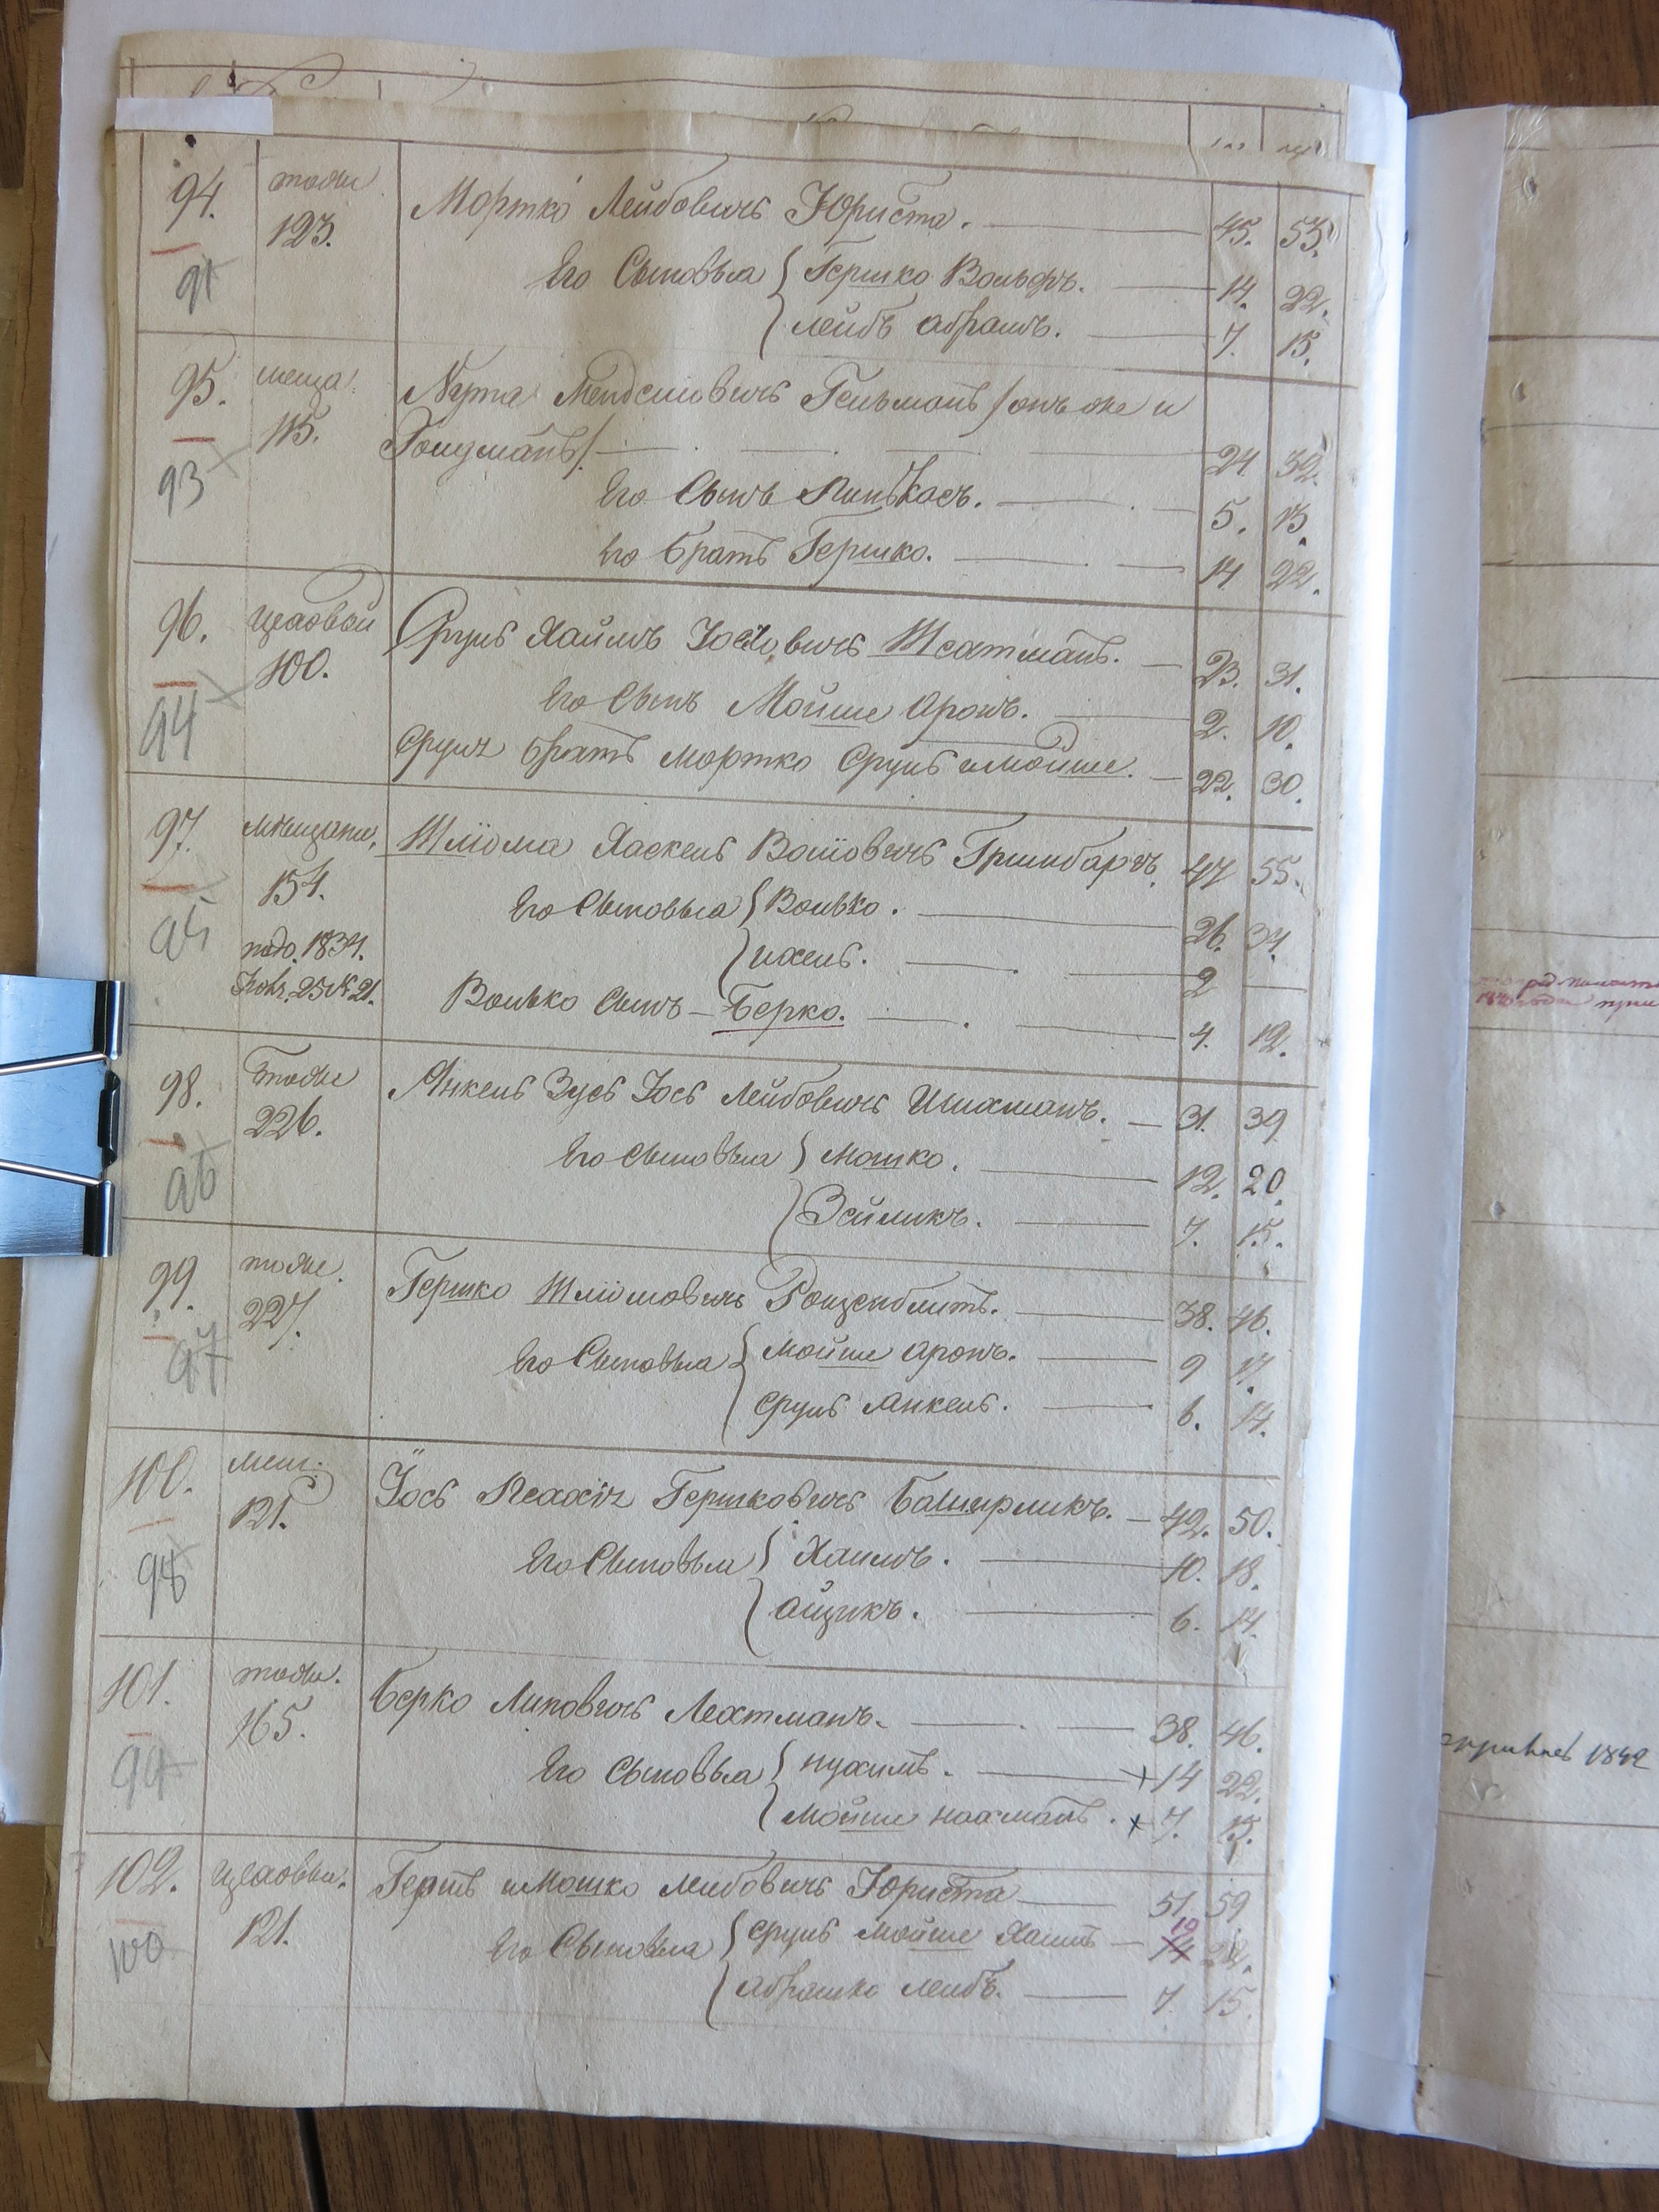 94. тоже Мортко Лейбовичъ Юриста. 45. 53.
123.
91 Его Сыновья { Гершко Вольфъ. 14. 22.
Лейбъ Абрамъ. 7. 15.
95. меща. Нута Менделиовичъ Гельманъ / онъ же и
115. Гольдманъ /. 24 32.
93 Его Сынъ Пинькасъ. 5. 13.
Его братъ Гершко. 14 22.
96. цеховый Сруль Хаимъ Іосіовичъ Шехтманъ. 23. 31.
100.
94 Его Сынъ Мойше Аронъ. 2. 10.
Сруля братъ Мортко Сруль и Мойше. 22. 30.
97. мѣщане, Шліома Хаскель Воліовичъ Гринбаргъ. 47 55.
154. Его Сыновья { Волько. 26. 34.
95 подо. 1834. ихель. 2 —
Нояб. 25 № 21. Волько сынъ — Берко. 4. 12.
98. тоже Янкель Зусь Іось Лейбовичъ Шихманъ. 31. 39
226.
96 Его Сыновья } Мошко. 12. 20.
Зейликъ. 7. 15.
99. тоже. Гершко Шліомовичъ Розенблитъ. 38. 46.
227.
97 Его Сыновья { Мойше Аронъ. 9 17.
Сруль Янкель. 6. 14.
100. мещ. Іось Песахія Гершковичъ Баширликъ. 42. 50.
121.
98 Его Сыновья } Хаимъ. 10. 18.
Айзикъ. 6. 14.
101. тоже. Берко Липовичъ Лехтманъ. 38. 46.
165.
99 Его Сыновья } Нухимъ. + 14 22.
Мойше Нахманъ. х 7. 15.
102. Цеховый. Гершъ и Мошко Лейбовичъ Юриста 51. 59
121. 10
100 Его Сыновья { Сруль Мойше Хаимъ 14 22.
Абрамко Лейбъ. 7. 15.
1842